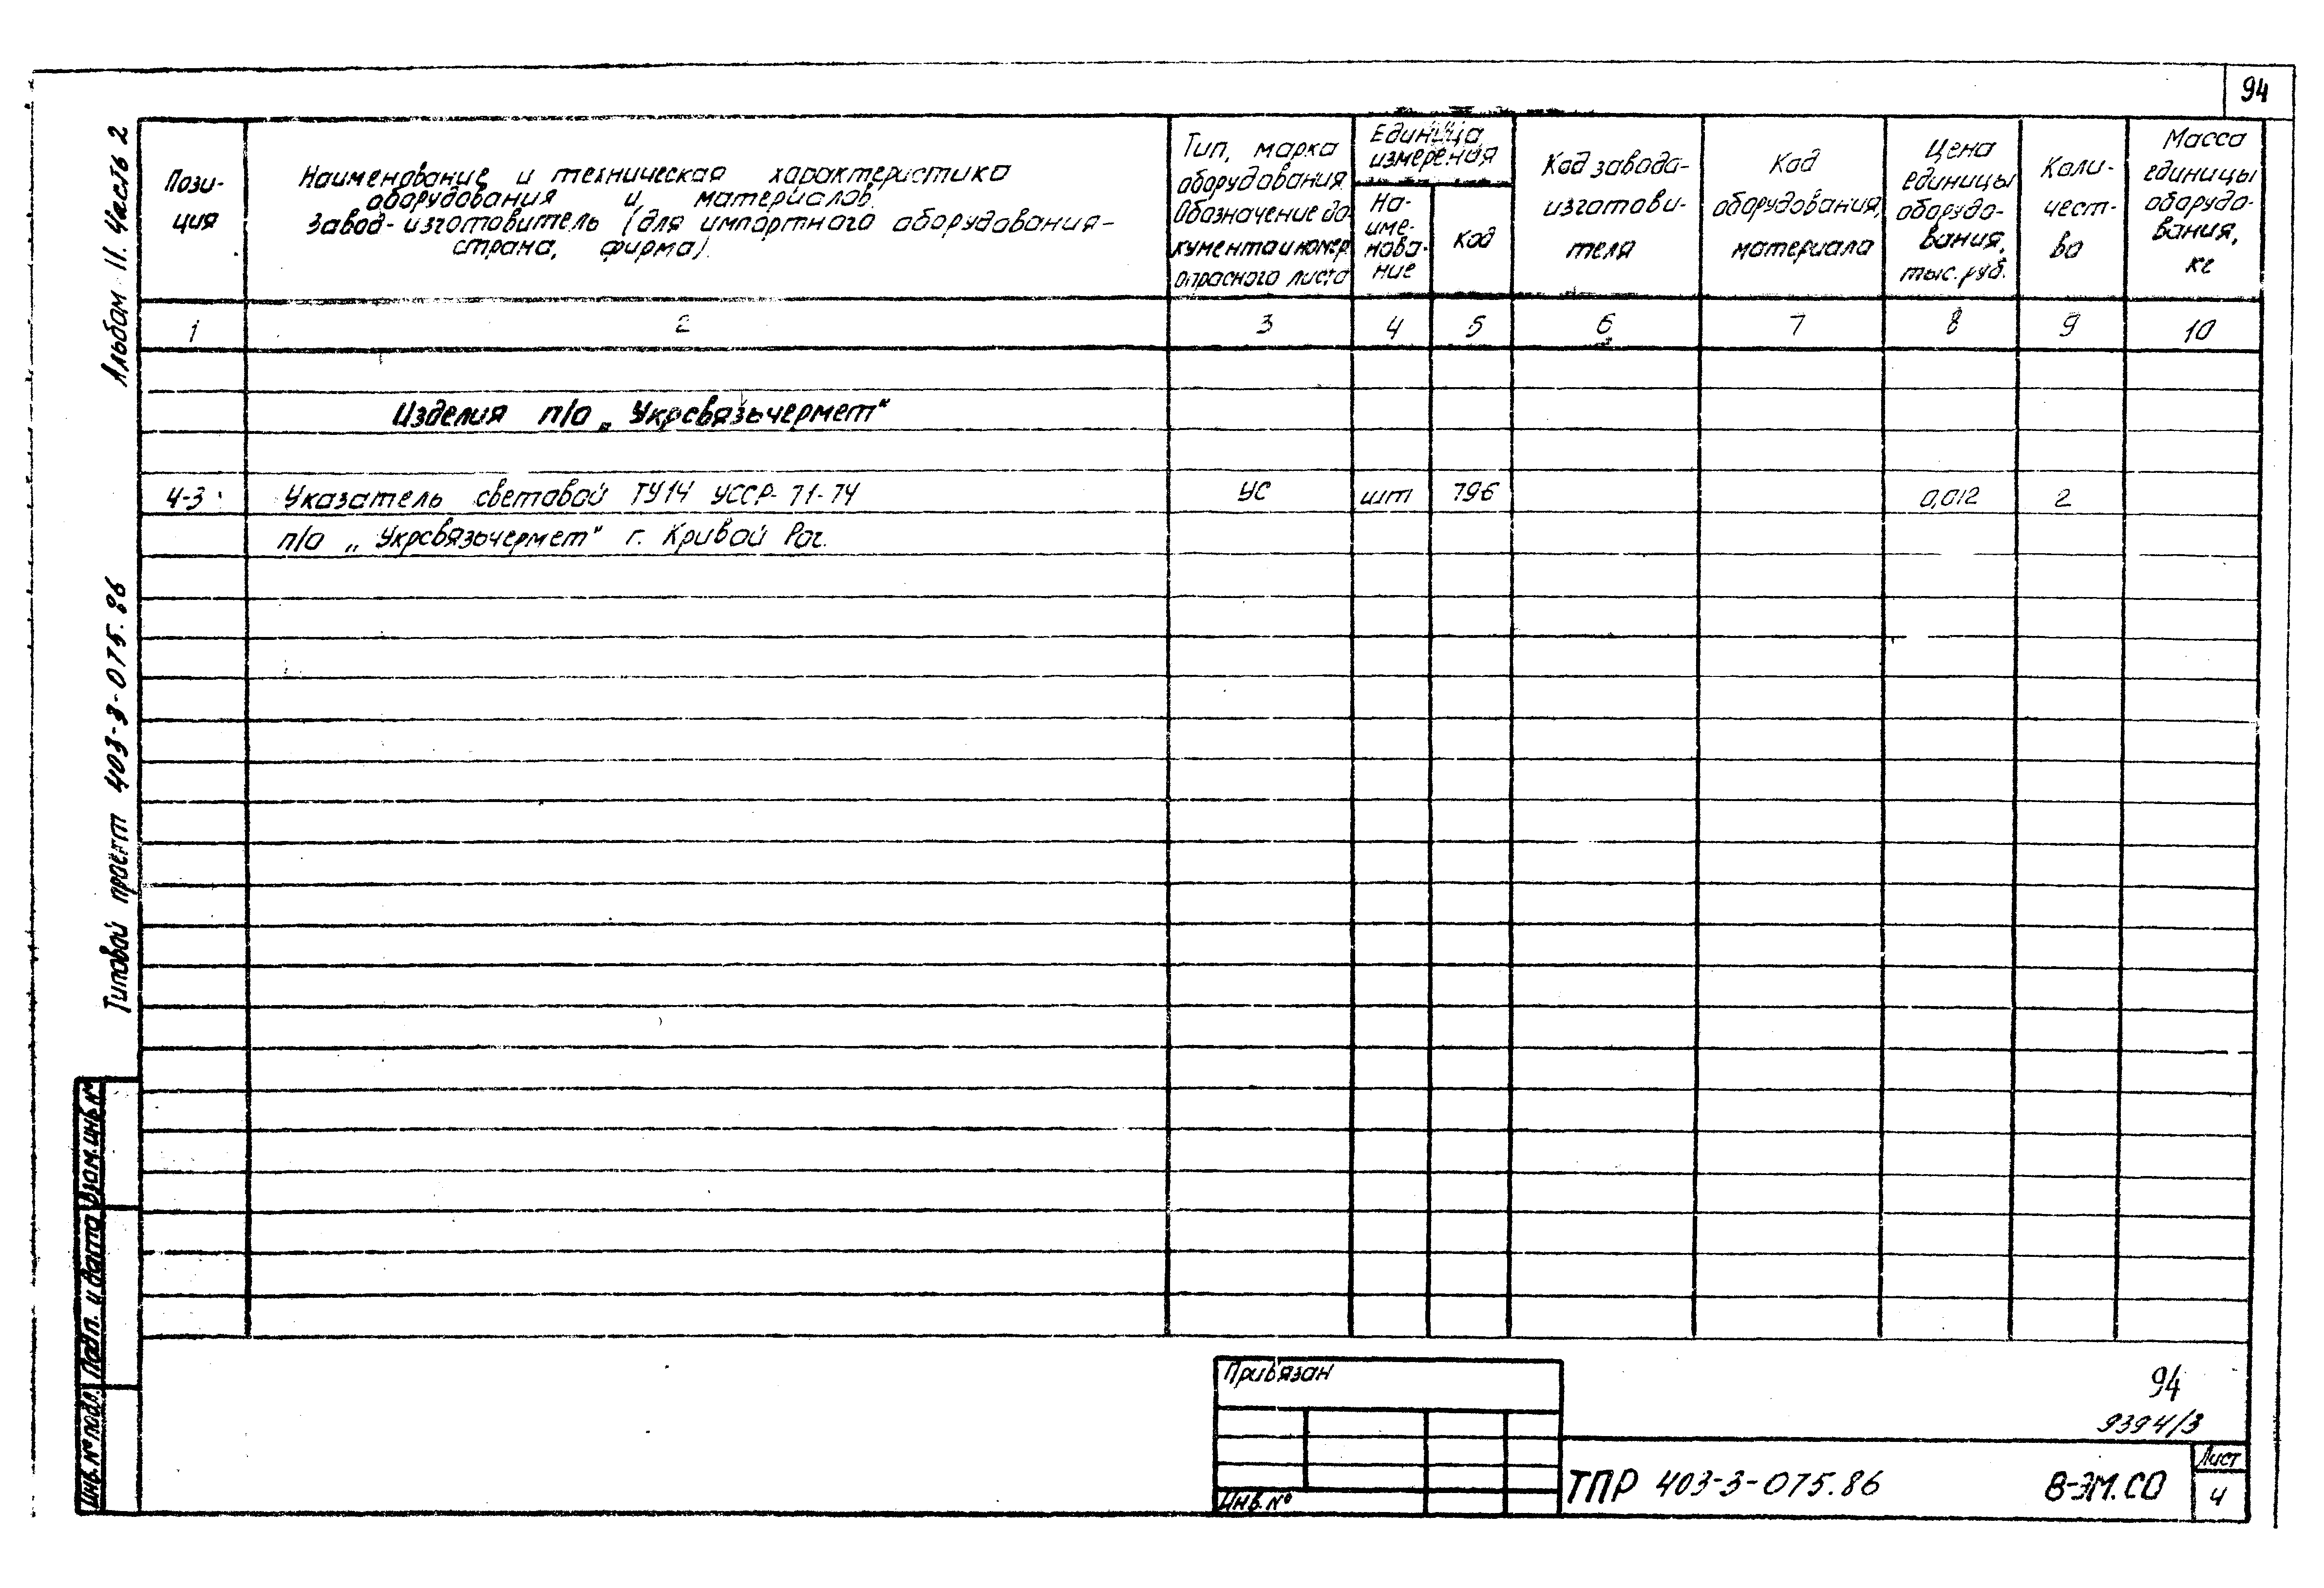 94
Альбом II. Часть 2
Типовой проект 403-3-075.86
Пози-
ция
Наименование и техническая характеристика
оборудования и материалов.
Завод-изготовитель (для импортного оборудования-
страна, фирма).
Тип, марка
оборудования.
Обозначение до-
кумента и номер
опросного листа
Единица
измерения
На-
име-
нова-
ние
Код
Код завода-
изготови-
теля
Код
оборудования,
материала
Цена
единицы
оборудо-
вания,
тыс. руб.
Коли-
чест-
во
Масса
единицы
оборудо-
вания,
кг
1 2 3 4 5 6 7 8 9 10
Изделия п/о „Укрсвязьчермет"
4-3 Указатель световой ТУ14 УССР-71-74 УС шт 796 0,012 2
п/о „Укрсвязьчермет" г. Кривой Рог.
Взам. инв. №
Подп. и дата
Инв. № подл.
Привязан
Инв. №
94
9394/3
ТПР 403-3-075.86 В-ЭМ.СО
Лист
4